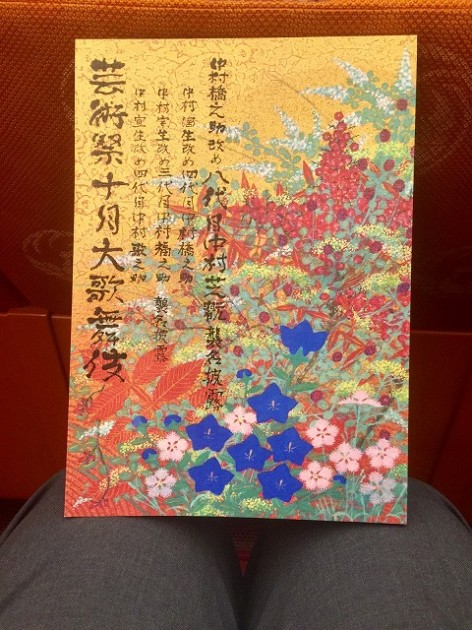 中村橋之助改め八代目中村芝翫襲名披露
中村国生改め四代目中村橋之助
中村宗生改め三代目中村福之助 襲名披露
中村宜生改め四代目中村歌之助
芸術祭十月大歌舞伎